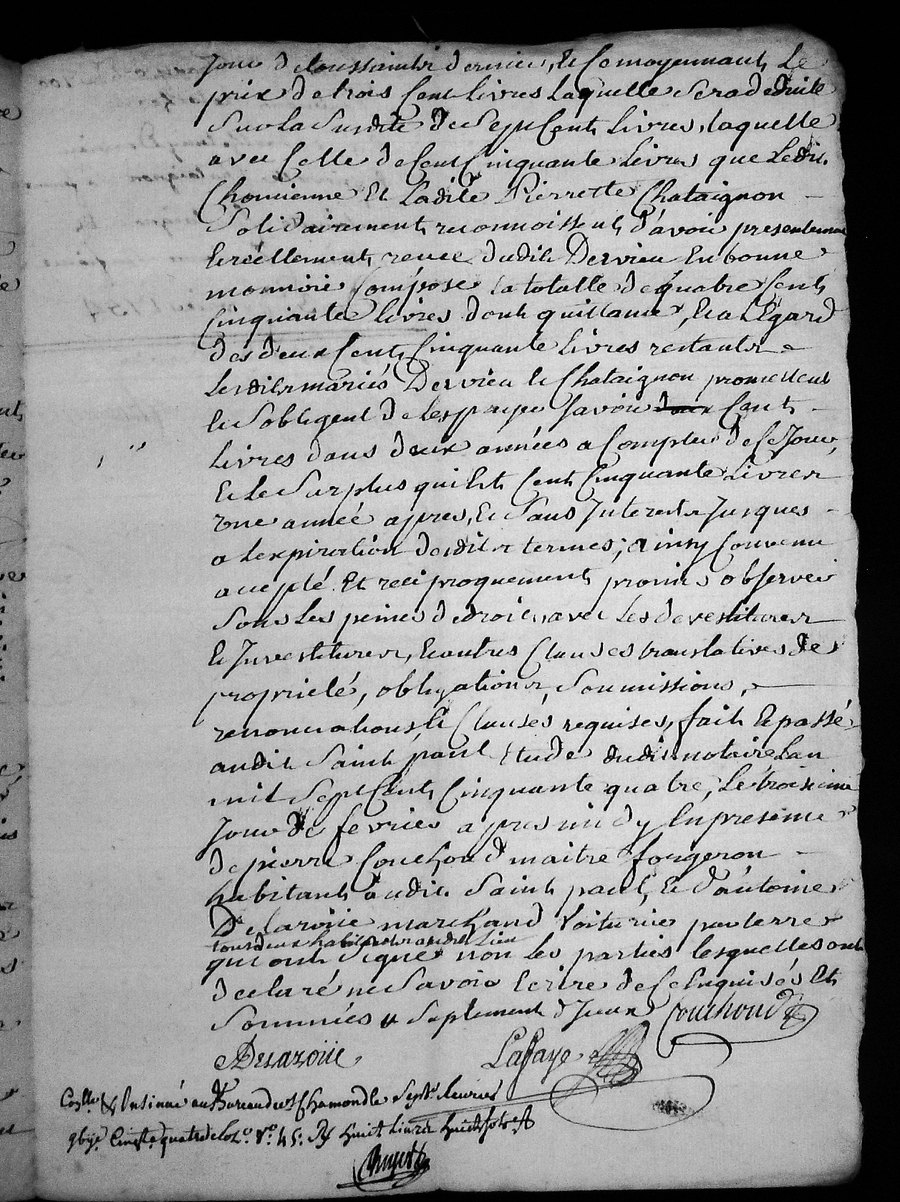 Jour de toussaints dernier, et ce moyennant le
prix de trois cent livres laquelle sera deduite
sur la susdite de sept cent livres, laquelle
avec celle de cent cinquante livres que ledit
Chomienne et ladite Pierrette Chataignon
solidairement reconnoissent d'avoir presentement
et réellement receue dudit Dervieu en bonne
monnoie compose la totalle de quatre cent
cinquante livres dont quittance, et a l'égard
des deux cent cinquante livres restants
lesdits mariés Dervieu et Chataignon promettent
et s'obligent de les payer savoir deux cent
livres dans deux années a compter de ce jour,
et le surplus qui est cent cinquante livres
une année apres, et sans interests jusques
a l'expiration desdits termes; ainsy convenu
accepté et reciproquement promis observer
sous les peines de droit, avec les devestitures
et investitures, et autres clauses translatives de
propriété, obligations, soumissions,
renonciations, et clauses requises, fait et passé
audit Saint paul Etude dudit notaire L'an
mil sept cent cinquante quatre, le troisieme
jour de fevrier apres midy en presence
de pierre Couchoud maitre forgeron
habitant audit Saint paul, et d'antoine
Delaroiie marchand voiturier par terre
tous deux habitants audit lieu
qui ont signé non les parties lesquelles ont
declaré ne savoir Ecrire de ce Enquises et
sommées separement d'Iceux Couchoud
Delaroüe Lafaye
Con.lle & Insinué au Bureau de St Chamond le sept fevrier
cinqte quatre fo. 45. R. huit livres huit sols